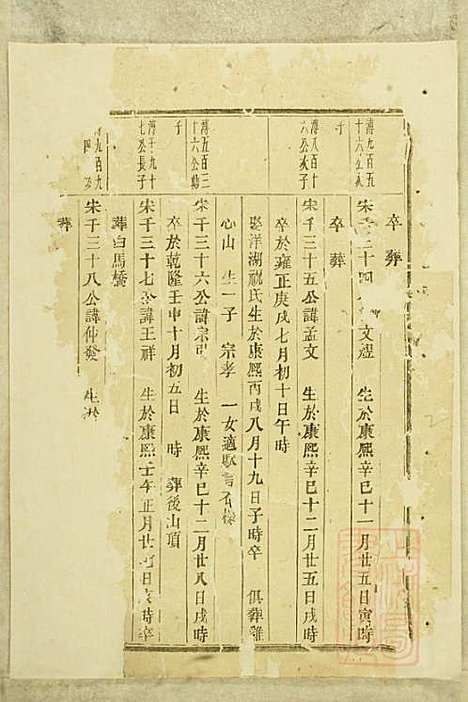 卒 葬
傅九百五十六公
宋千三十四 文 生於康熙辛巳十一月廿五日寅時
卒 葬
子
傅八百十六公次子
宋千三十五公諱孟文 生於康熙辛巳十二月廿五日戌時
卒於雍正庚戌七月初十日午時
娶洋湖祝氏生於康熙丙戌八月十九日子時卒 俱葬雞
心山 生一子 宗孝 一女適
傅五百三十六公
宋千三十六公諱宗 生於康熙辛巳十二月廿八日戌時
子
卒於乾隆壬申十月初五日 時 葬後山頂
傅千九十七公長子
宋千三十七公諱王祥 生於康熙壬午正月廿 日 時卒
葬白馬橋
九百九
宋千三十八公諱仲發 生於
葬